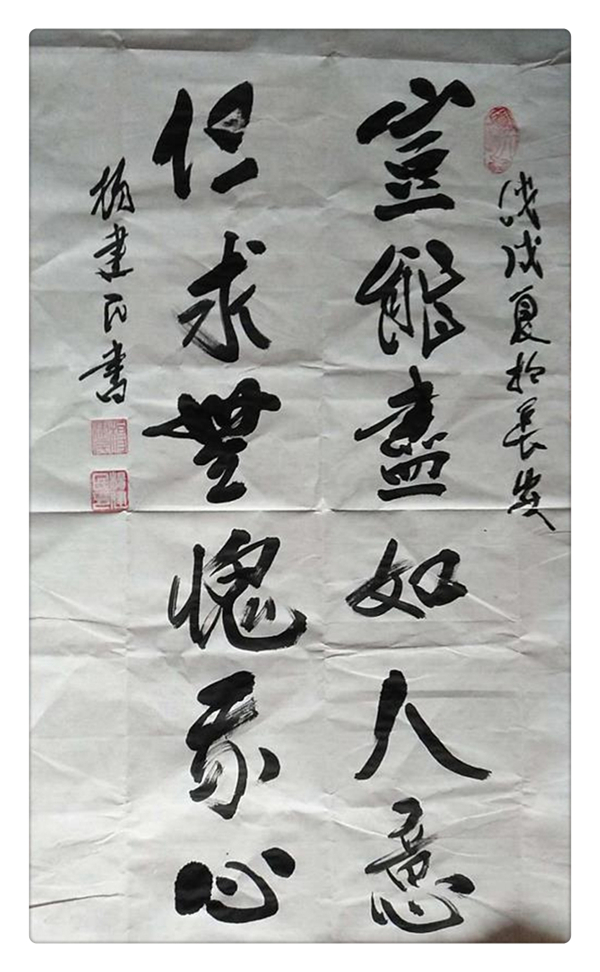 戊戌夏於長安
豈能盡如人意
但求無愧我心
楊建民書